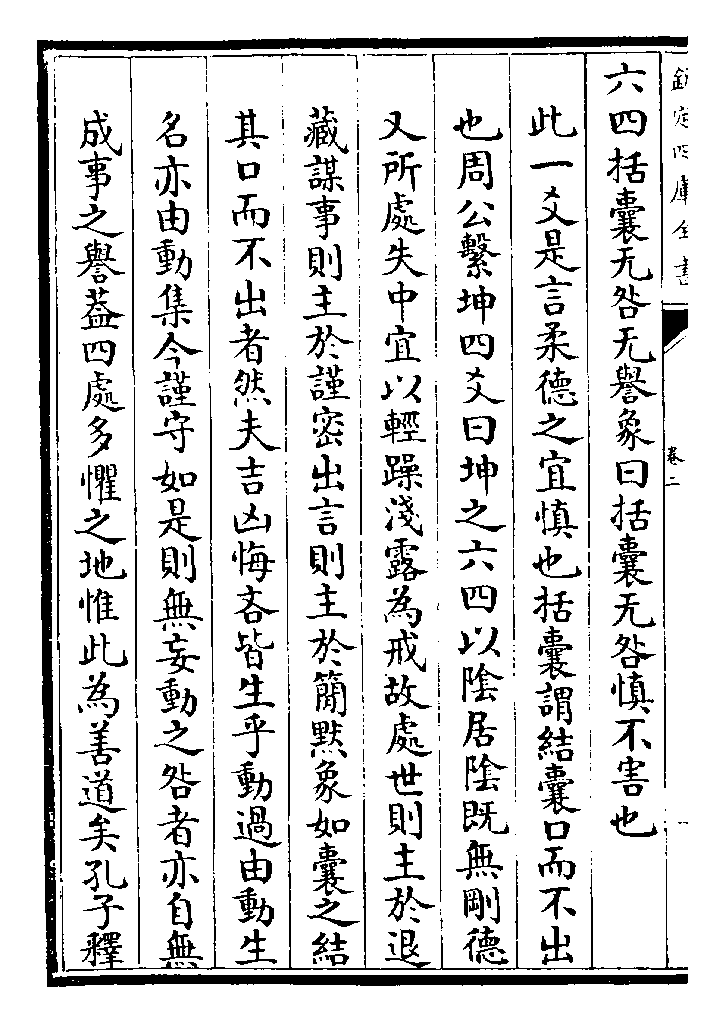 欽定四庫全書
卷二
六四括囊无咎无譽象曰括囊无咎慎不害也
此一爻是言柔德之宜慎也括囊謂結囊口而不出
也周公繫坤四爻曰坤之六四以陰居陰既無剛德
又所處失中宜以輕躁淺露為戒故處世則主於退
藏謀事則主於謹密出言則主於簡默象如囊之結
其口而不出者然夫吉凶悔吝皆生乎動過由動生
名亦由動集今謹守如是則無妄動之咎者亦自無
成事之譽葢四處多懼之地惟此為善道矣孔子釋